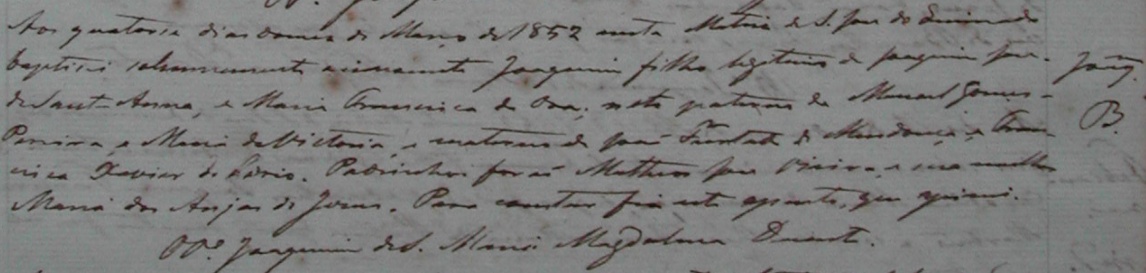 Aos quatorse dias do mes de Março de 1852 nesta Matriz de S. Jose do
baptisei solemnemente a innocente Joaquim filho legitimo de Joaquim Jose
de Sant Anna, e Maria Francisca de neto paterno de Manoel Gomes
Pereira e Maria da Victoria, e materno de Jose Furtado de Mendonça e Fran
cisca Xavier de Padrinhos forão Matheos Jose Vieira e sua mulher
Maria dos Anjos de Jesus. Para constar fis este assento, que assinei.
O Pe. Joaquim de S. Maria Magdalena Duarte.
Joaq.
B.